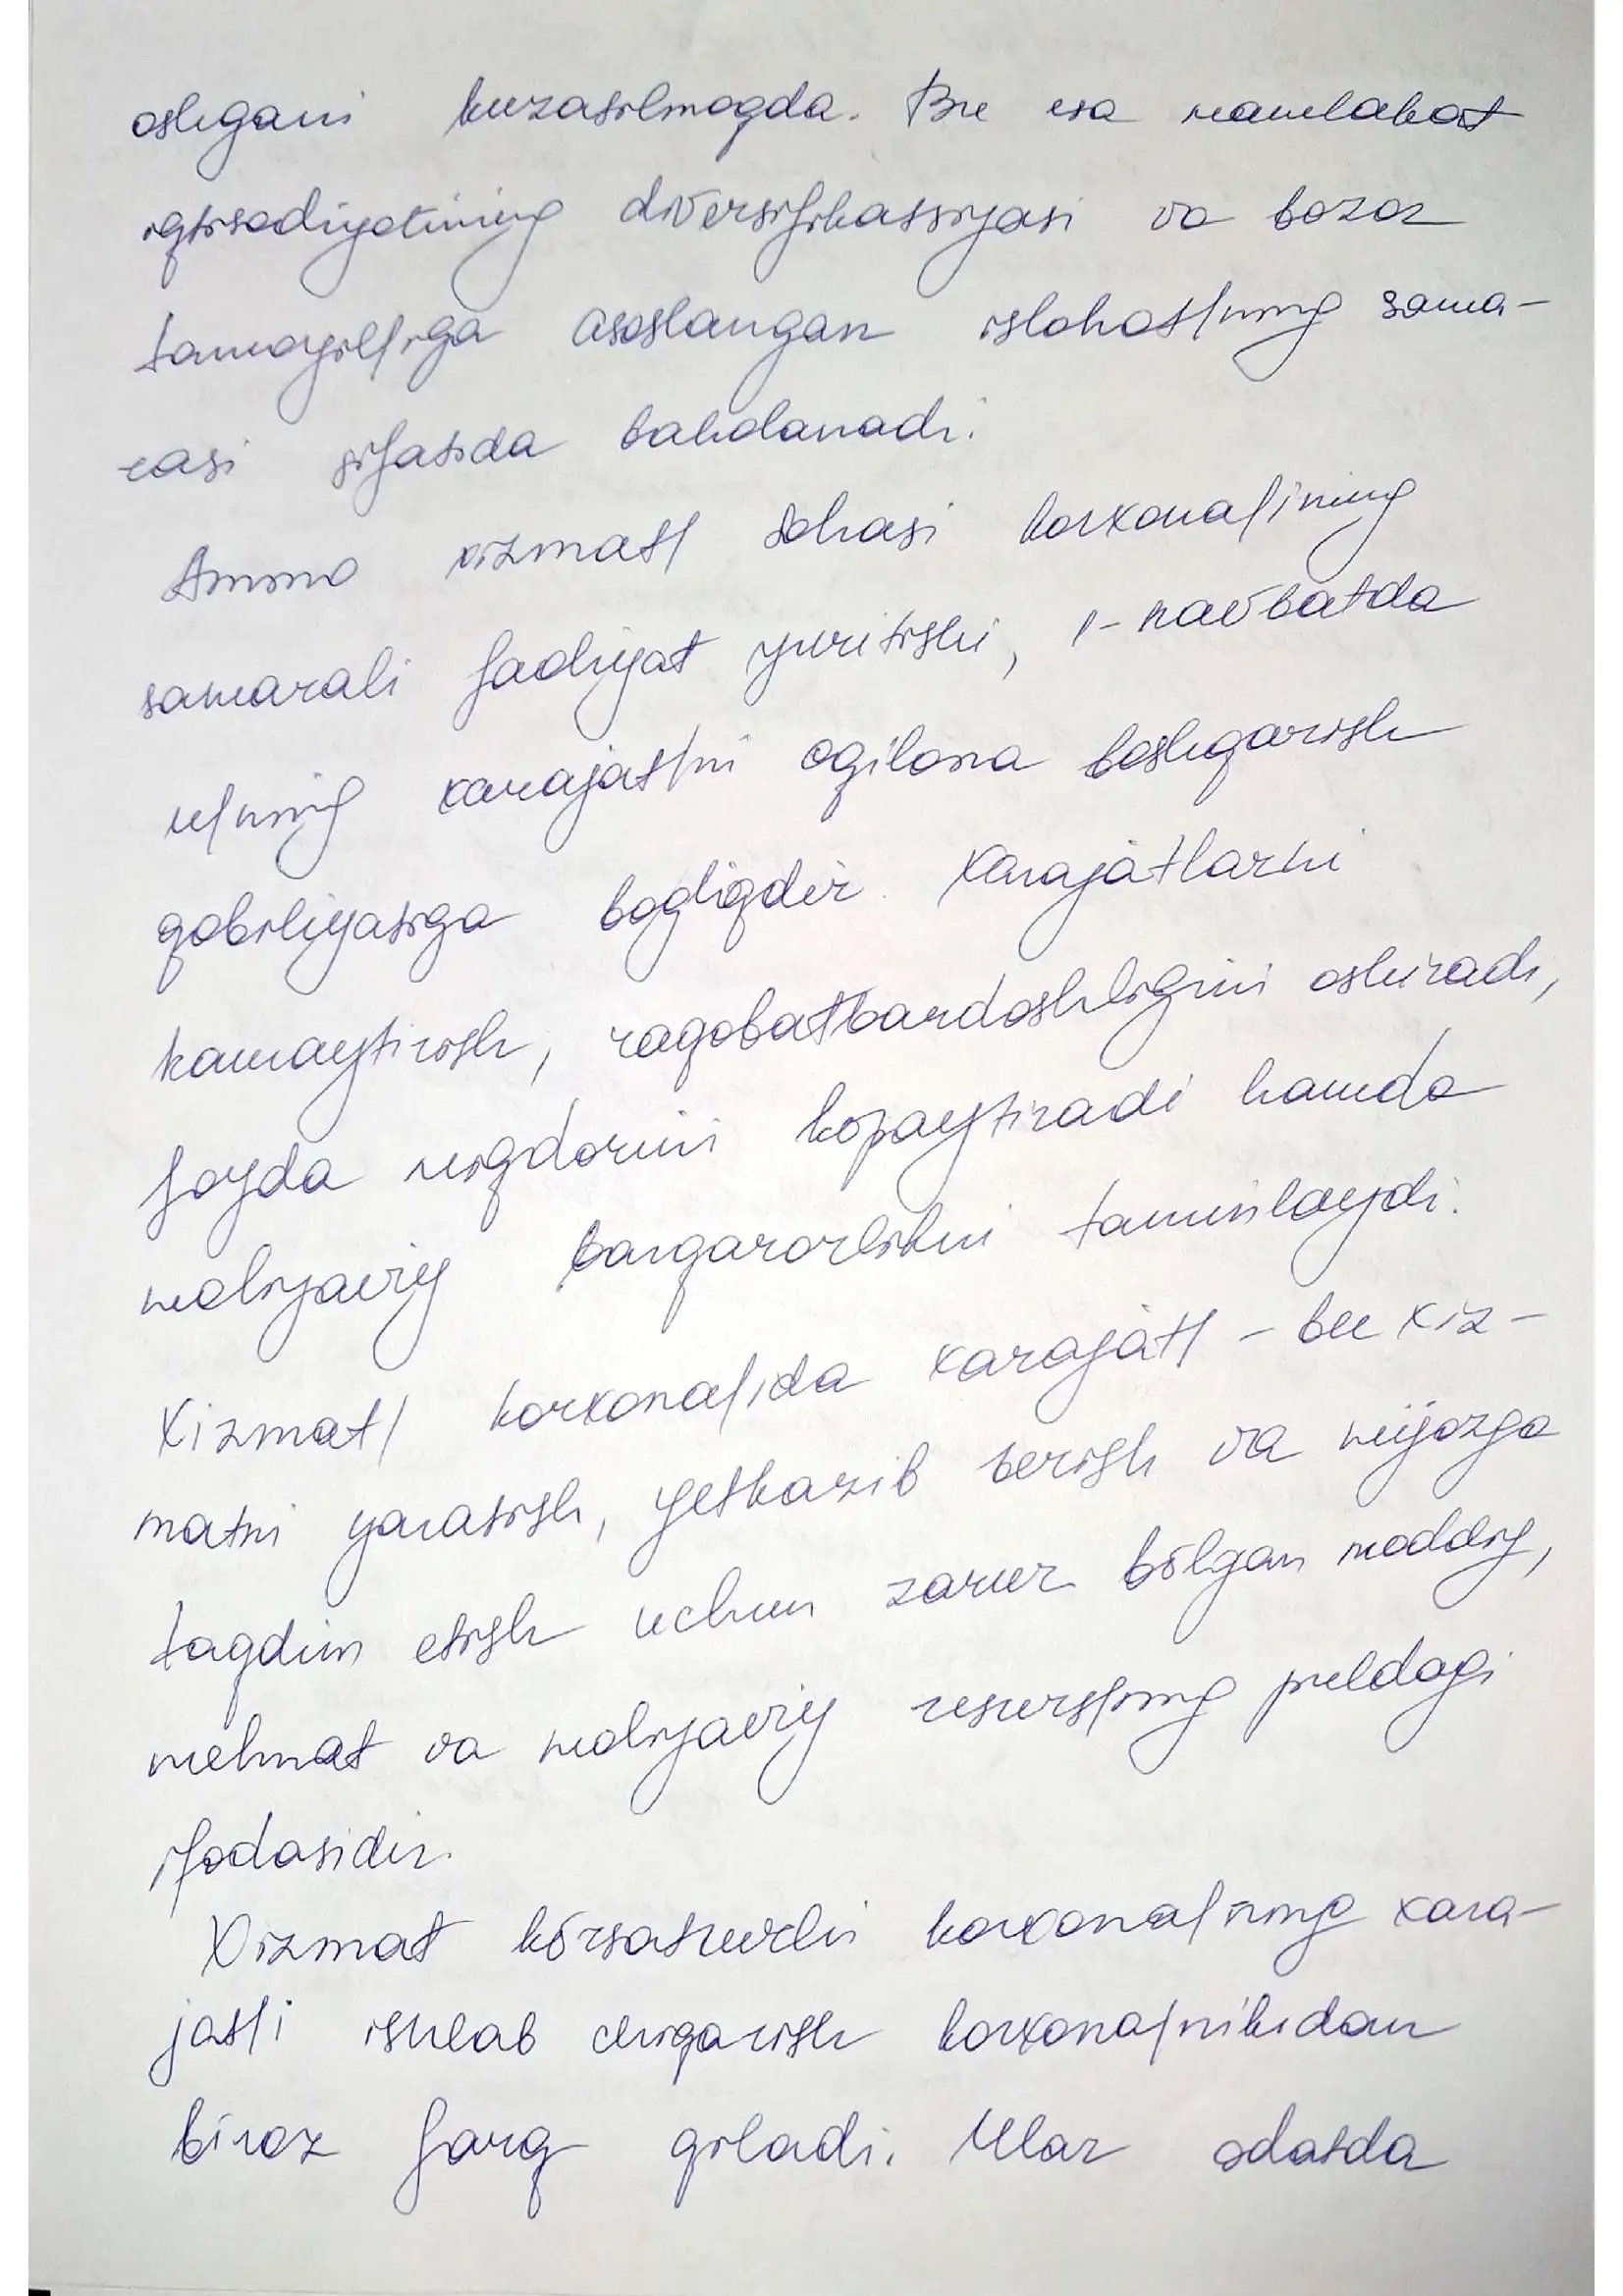 oshgani kuzatilmoqda. Bu esa mamlakat
iqtisodiyotining diversifikatsiyasi va bozor
tamoyil/iga asoslangan islohot/ning sama-
rasi sifatida baholanadi.
Ammo xizmat/ sohasi korxona/ining
samarali faoliyat yuritishi, 1-navbatda
u/ning xarajat/ni oqilona boshqarish
qobiliyatiga bogliqdir. Xarajatlarni
kamaytirish, raqobatbardoshligini oshiradi,
foyda miqdorini kopaytiradi hamda
moliyaviy barqarorlikni taminlaydi.
Xizmat/ korxona/ida xarajat/ - bu xiz-
matni yaratish, yetkazib berish va mijozga
taqdim etish uchun zarur bōlgan moddiy,
mehnat va moliyaviy resurs/ning puldagi
ifodasidir.
Xizmat kōrsatuvchi korxona/ning xara-
jat/i ishlab chiqarish korxona/nikidan
biroz farq qiladi. Ular odatda